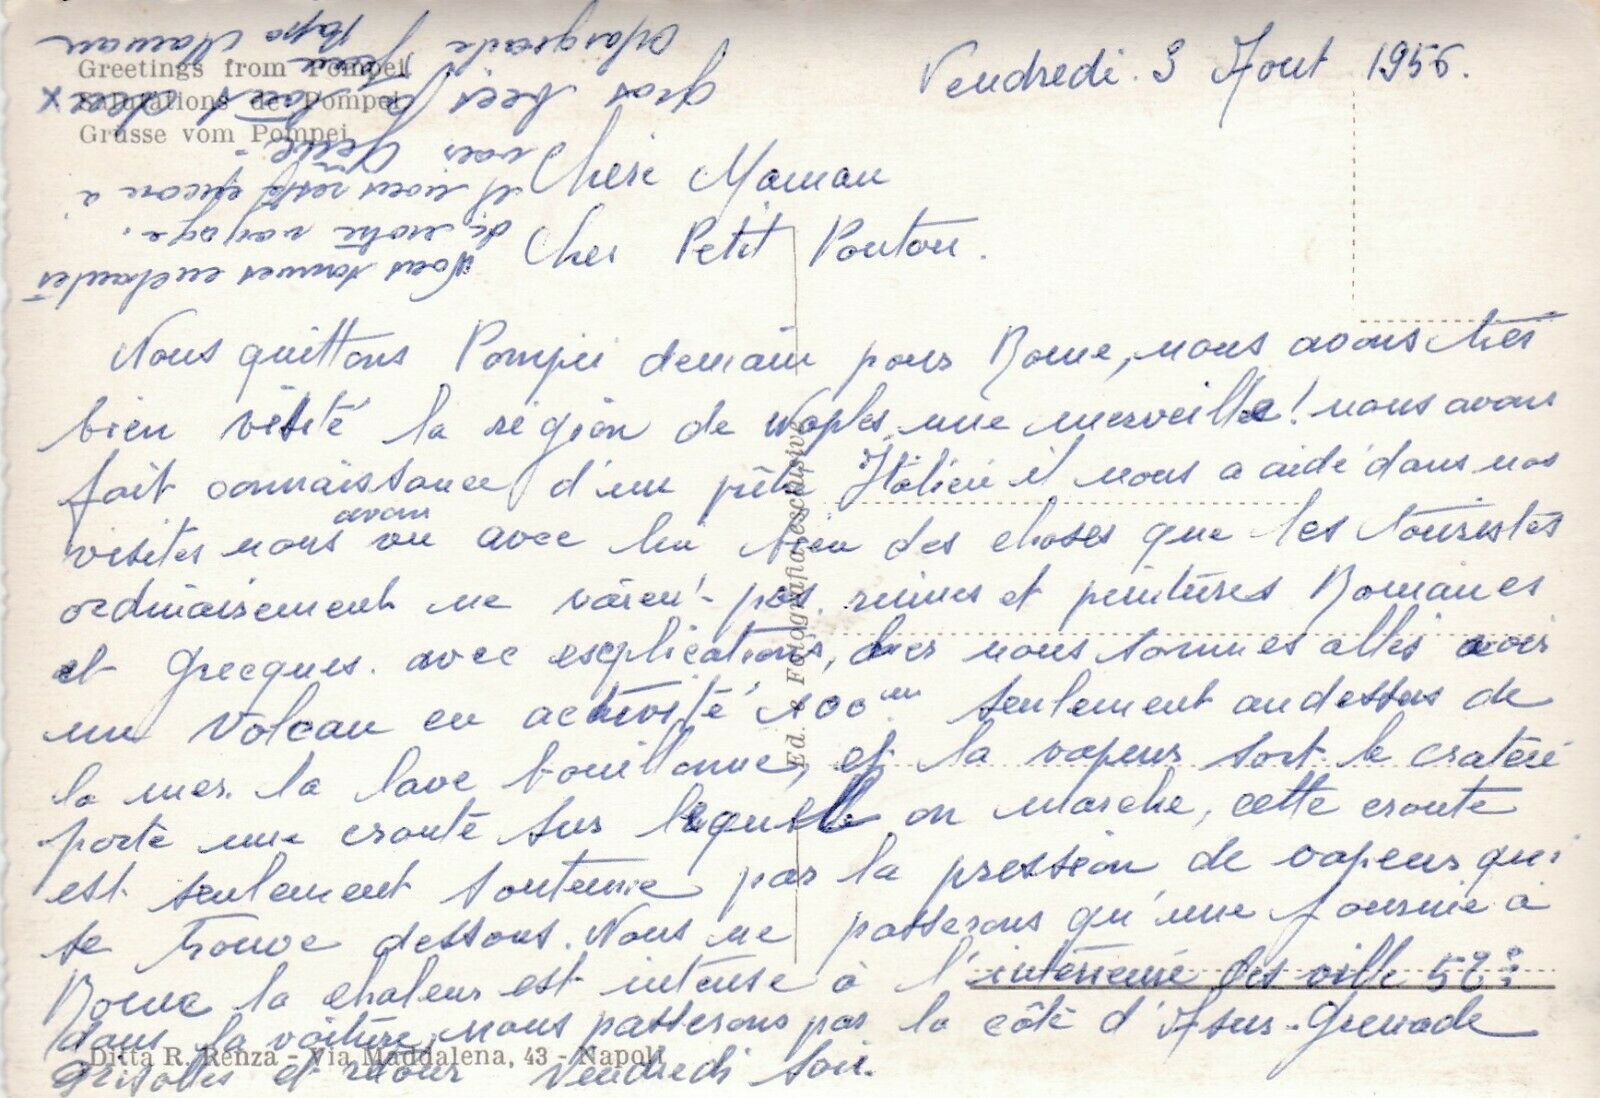 Greetings from Pompei
Salutations de Pompei
Grüsse vom Pompei
Vendredi. 3 Aout 1956.
Chère Maman
Cher Petit Pouton.
Nous quittons Pompei demain pour Rome, nous avons très
bien visité la région de Naples une merveille! nous avons
fait connaissance d'un prêtre Italien il nous a aidé dans nos
visites nous avons vu avec lui bien des choses que les touristes
ordinairement ne voient pas. ruines et peintures Romaines
et Grecques. avec explications, hier nous sommes allés voir
un Volcan en activité 100m seulement audessus de
la mer. la lave bouillonne, et la vapeur sort le cratère
porte une croute sur laquelle on marche, cette croute
est seulement soutenue par la pression de vapeur qui
se trouve dessous. Nous ne passerons qu'une journée à
Rome la chaleur est intense à l'intérieure des ville 52°
dans la voiture, nous passerons par la côte d'Asur-Grenade
Grisolles et retour Vendredi soir.
Nous sommes enchantés
de notre voyage.
il nous reste encore à
voir
gros bees à tous deux x
Marguerite Jean Papa Maman
Ed. e Fotografia esclusive
Ditta R. Renza - Via Maddalena, 43 - Napoli